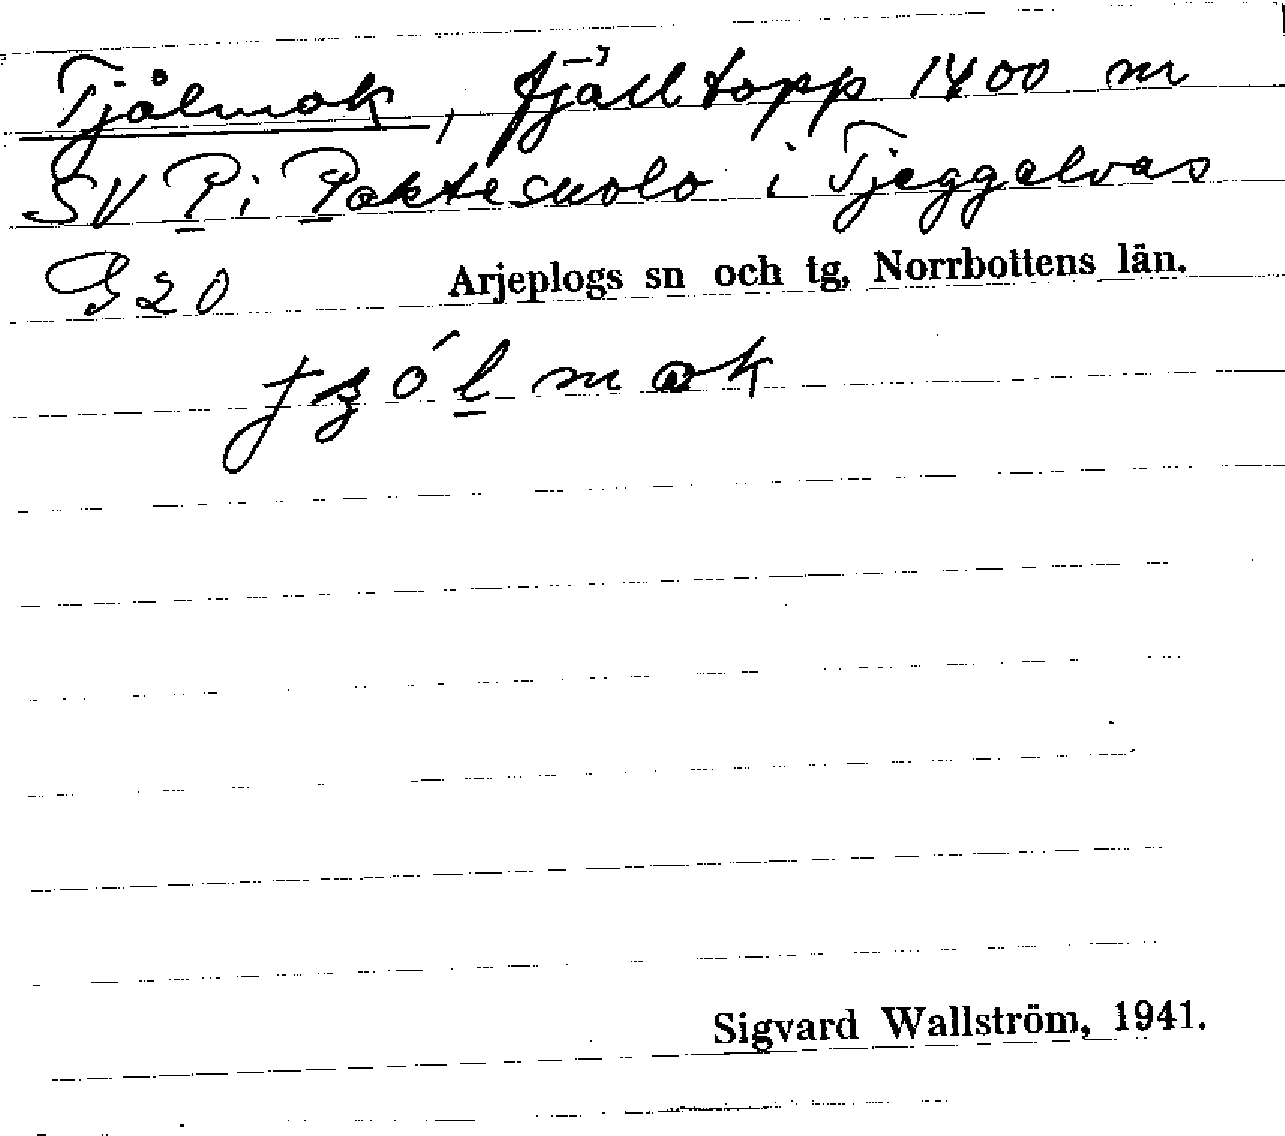 Tjålmok, fjälltopp 1400 m
SV P i Paktesuolo i Tjeggelvas
G20 Arjeplogs sn och tg, Norrbottens län.
tʒólmɑk
Sigvard Wallström, 1941.